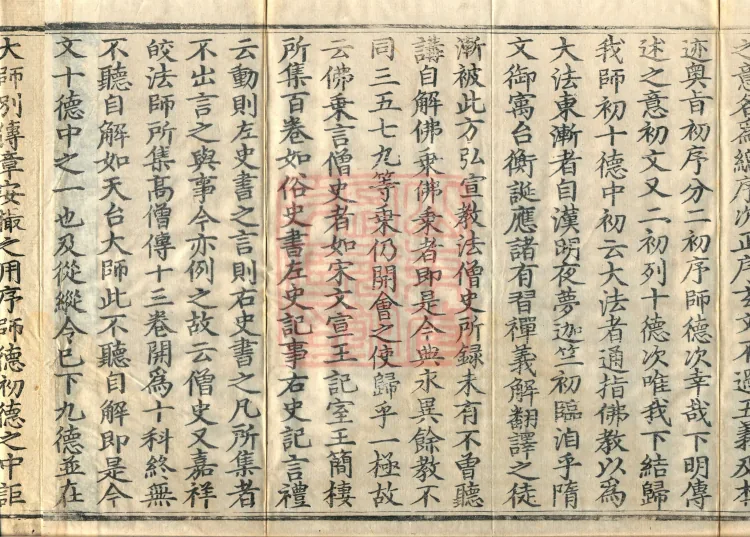 迹奧旨初序分二初序師德次幸哉下明傳
述之意初文又二初列十德次唯我下結歸
我師初十德中初云大法者通指佛教以爲
大法東漸者自漢明夜夢迦竺初臨洎乎隋
文御寓台衡誕應諸有習禪義解翻譯之徒
漸被此方弘宣教法僧史所録未有不曾聽
講自解佛乗佛乗者即是今典永異餘教不
同三五七九等乗仍開會之使歸乎一極故
云佛乗言僧史者如宋文宣王記室王簡棲
所集百卷如俗史書左史記事右史記言禮
云動則左史書之言則右史書之凡所集者
不出言之與事今亦例之故云僧史又嘉祥
皎法師所集髙僧傳十三卷開爲十科終無
不聽自解如天台大師此不聽自解即是今
文十德中之一也及從縱令已下九德並在
大師別傳章安撮之用序師德初德之中詎